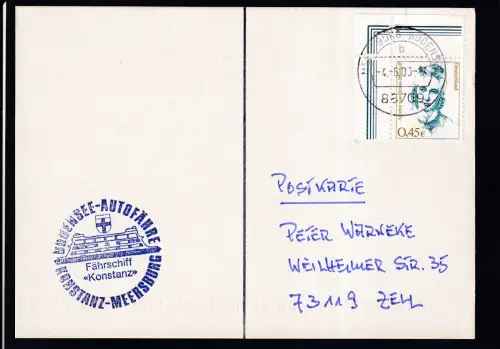 BODENSEE-AUTOFÄHRE
Fährschiff
«Konstanz»
KONSTANZ-MEERSBURG
BODENS
b
88709
Deutschland
0,45€
POSTKARTE
PETER WARNEKE
WEILHEIMER STR. 35
73119 ZELL